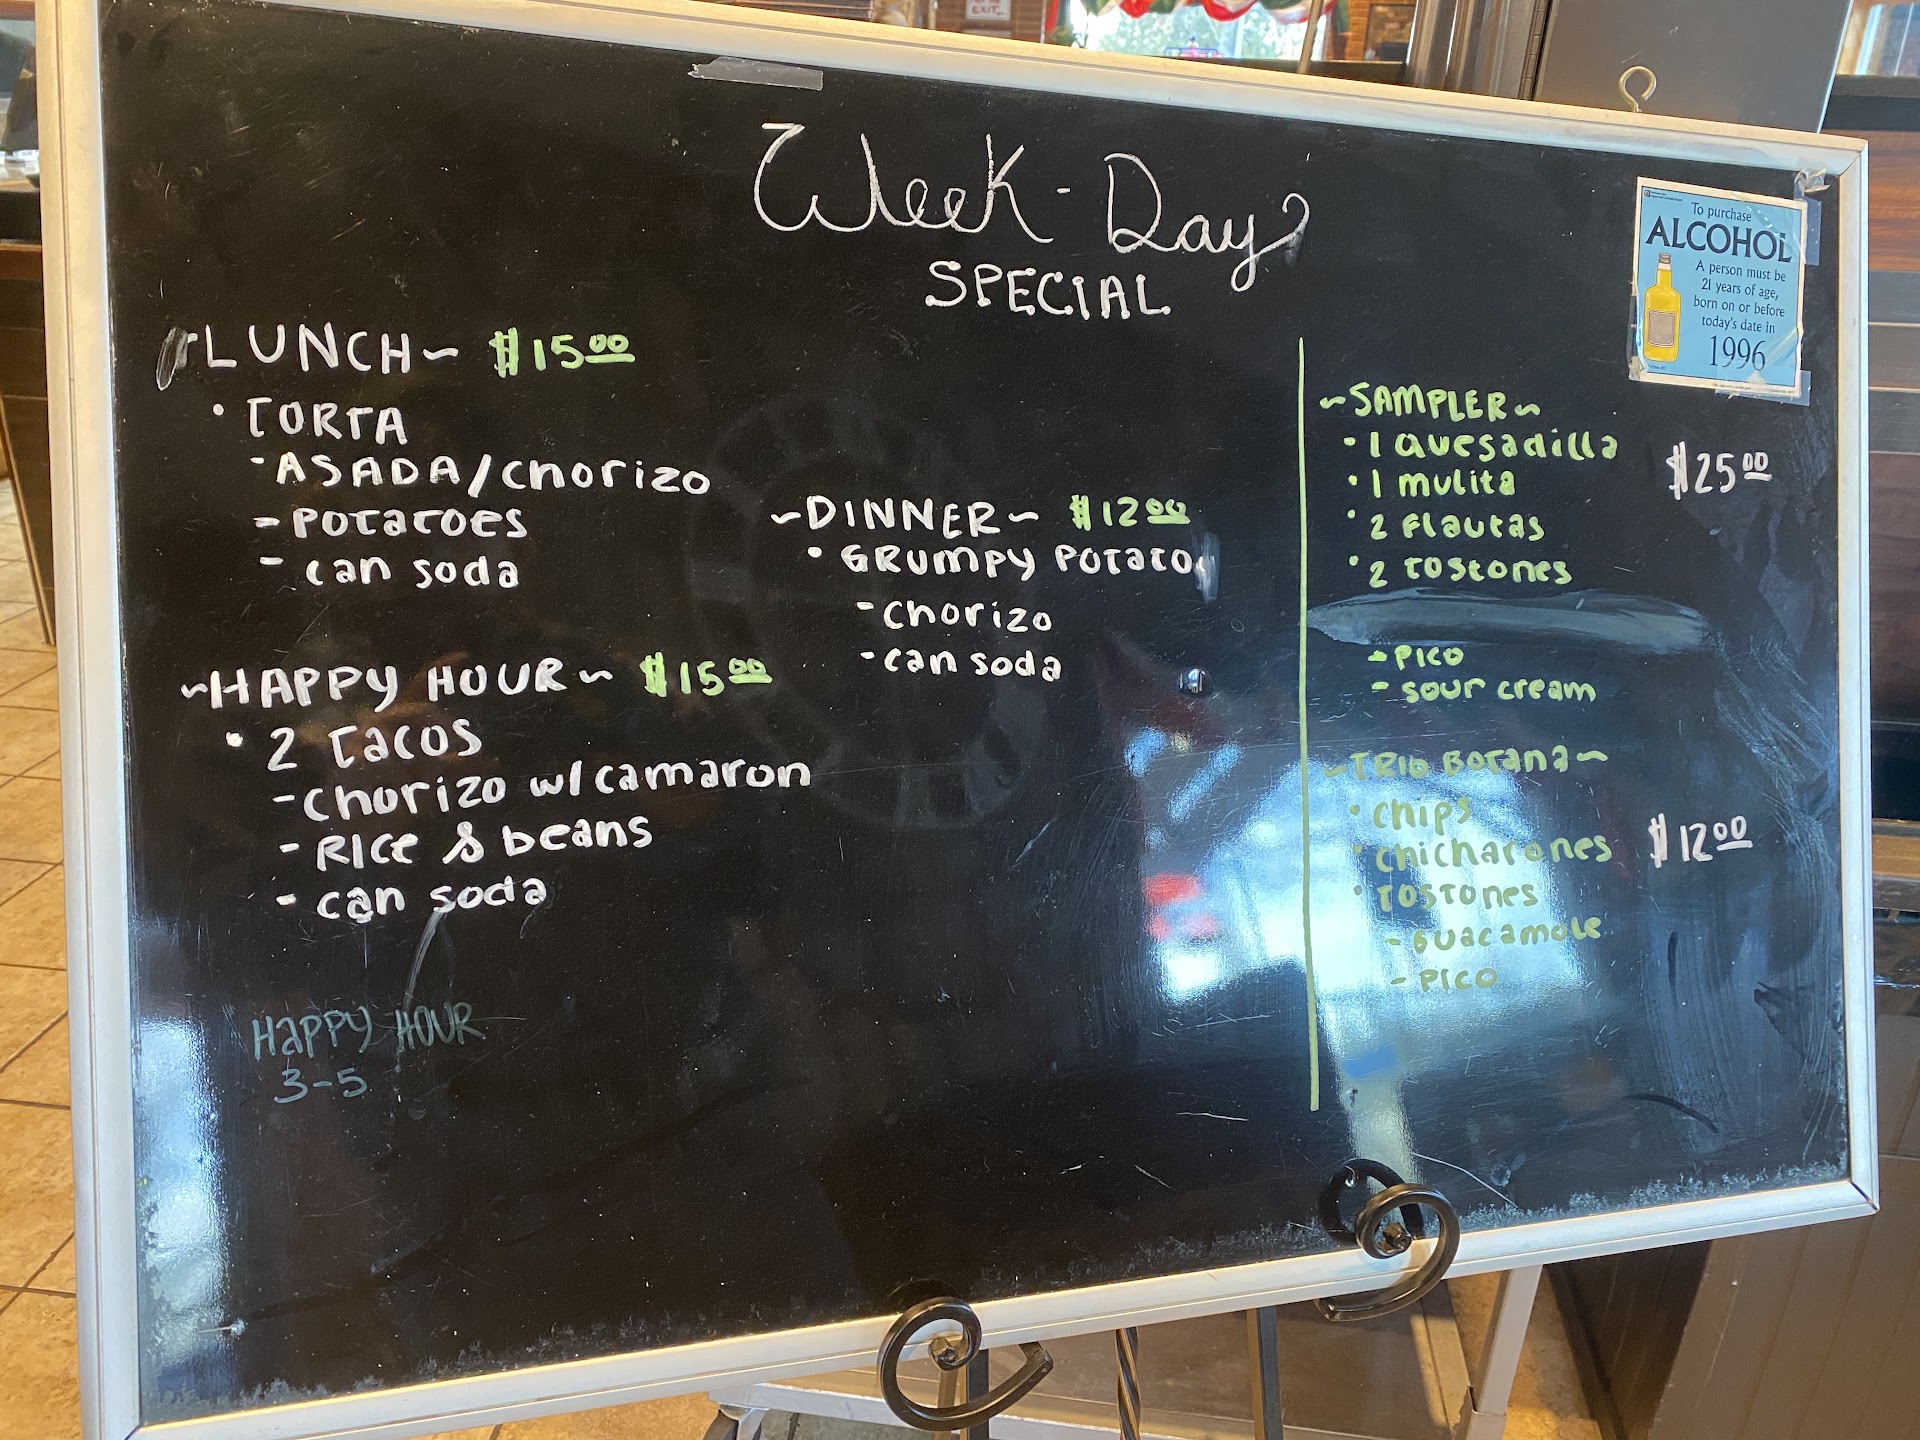 EXIT
Week-Day
SPECIAL
LUNCH~ $15.00
• TORTA
-ASADA/Chorizo
- POTATOES
- can soda
~HAPPY HOUR~ $15.00
• 2 Tacos
-Chorizo w/camaron
- Rice & beans
- can soda
Happy HOUR
3-5
~DINNER~ $12.00
• GRUMPY POTATO
-Chorizo
-can soda
~SAMPLER~
• 1 Quesadilla
• 1 mulita
• 2 Flautas
• 2 Tostones
$25.00
- PICO
- sour cream
~TRIO BOTANA~
• Chips
• Chicharones
• TOSTONES
- Guacamole
- PICO
$12.00
To purchase
ALCOHOL
A person must be
21 years of age,
born on or before
today's date in
1996